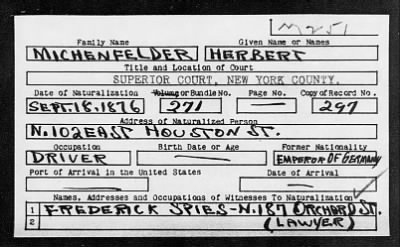 M251
Family Name Given Name or Names
MICHENFELDER HERBERT
Title and Location of Court
SUPERIOR COURT, NEW YORK COUNTY.
Date of Naturalization Volume or Bundle No. Page No. Copy of Record No.
SEPT. 18, 1876 271 — 297
Address of Naturalized Person
N. 102 EAST HOUSTON ST.
Occupation Birth Date or Age Former Nationality
DRIVER — EMPEROR OF GERMANY
Port of Arrival in the United States Date of Arrival
— —
Names, Addresses and Occupations of Witnesses To Naturalization
1 FREDERICK SPIES - N. 187 ORCHARD ST.
2 (LAWYER)